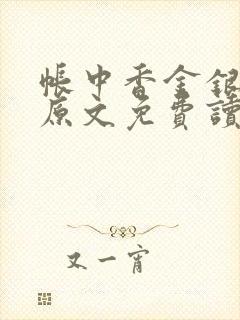 帳中香金銀
原文免費讀
又一宵